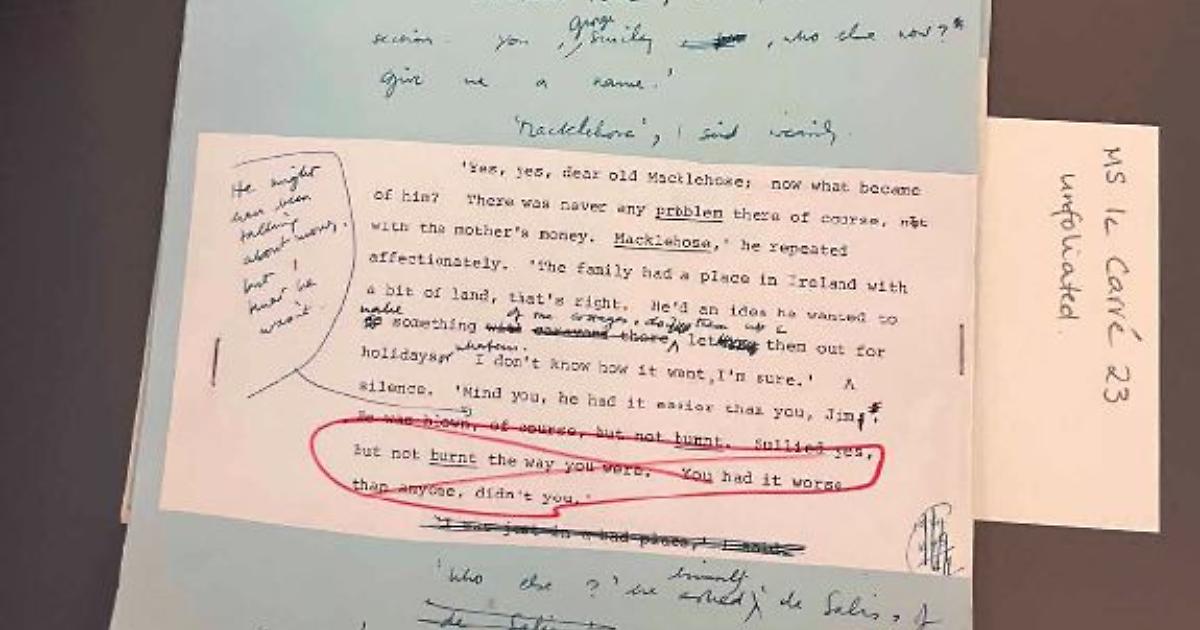 section. You, George Smiley, who else now?
Give me a name.'
'Macklehose', I said warily.
He might
have been
talking
about money,
but I
knew he
wasn't.
'Yes, yes, dear old Macklehose; now what became
of him? There was never any problem there of course, not
with the mother's money. Macklehose,' he repeated
affectionately. 'The family had a place in Ireland with
a bit of land, that's right. He'd an idea he wanted to
make of the cottages,
something with caravans there, let them out for
whatever.
holidays, I don't know how it went, I'm sure.' A
silence. 'Mind you, he had it easier than you, Jim.
He was blown, of course, but not burnt. Sullied yes,
but not burnt the way you were. You had it worse
than anyone, didn't you.'
'I was just in a bad place,' I said.
'Who else?' he asked himself, de Salis, of
de Salis
MS le Carré 23
unfoliated.